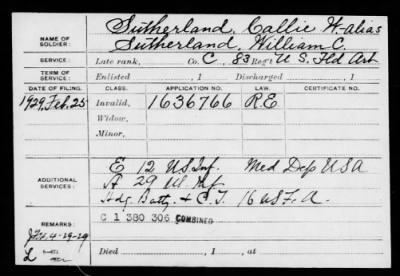 NAME OF SOLDIER: Sutherland, Callie W. alias
Sutherland, William C.
SERVICE: Late rank, Co. C, 83 Reg't U S, Fld Art
TERM OF SERVICE: Enlisted , 1 Discharged , 1
DATE OF FILING. CLASS. APPLICATION NO. LAW. CERTIFICATE NO.
1929, Feb. 25 Invalid, 1636766 R.E
Widow,
Minor,
ADDITIONAL SERVICES: E 12 U.S. Inf. Med Dep USA
A 29 Inf.
Hdq. Batty & C.T. 16 US F. A.
REMARKS: C 1 380 306 COMBINED
4-29-29
Died , 1 , at